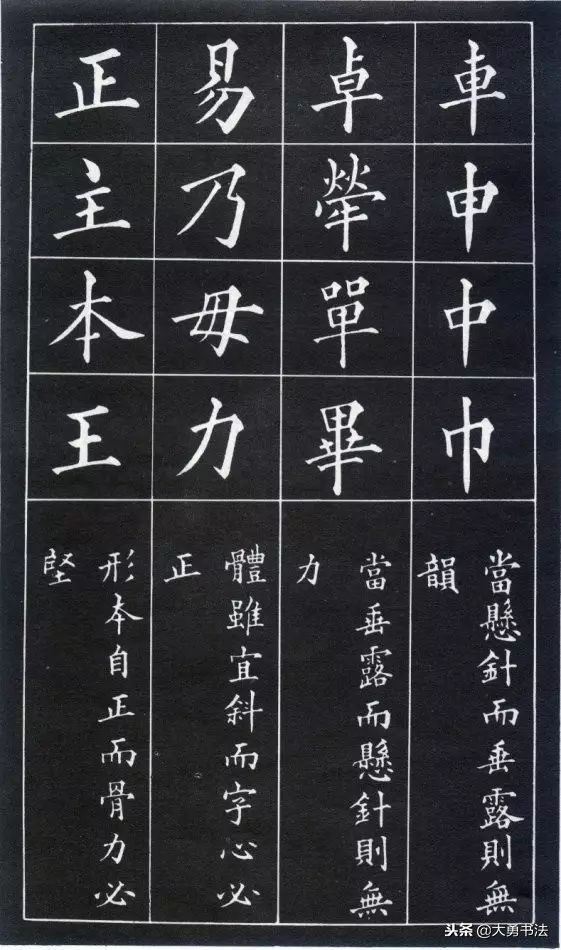 車申中巾
當懸針而垂露則無
韻
卓犖單畢
當垂露而懸針則無
力
易乃毋力
體雖宜斜而字心必
正
正主本王
形本自正而骨力必
堅
头条@大勇书法